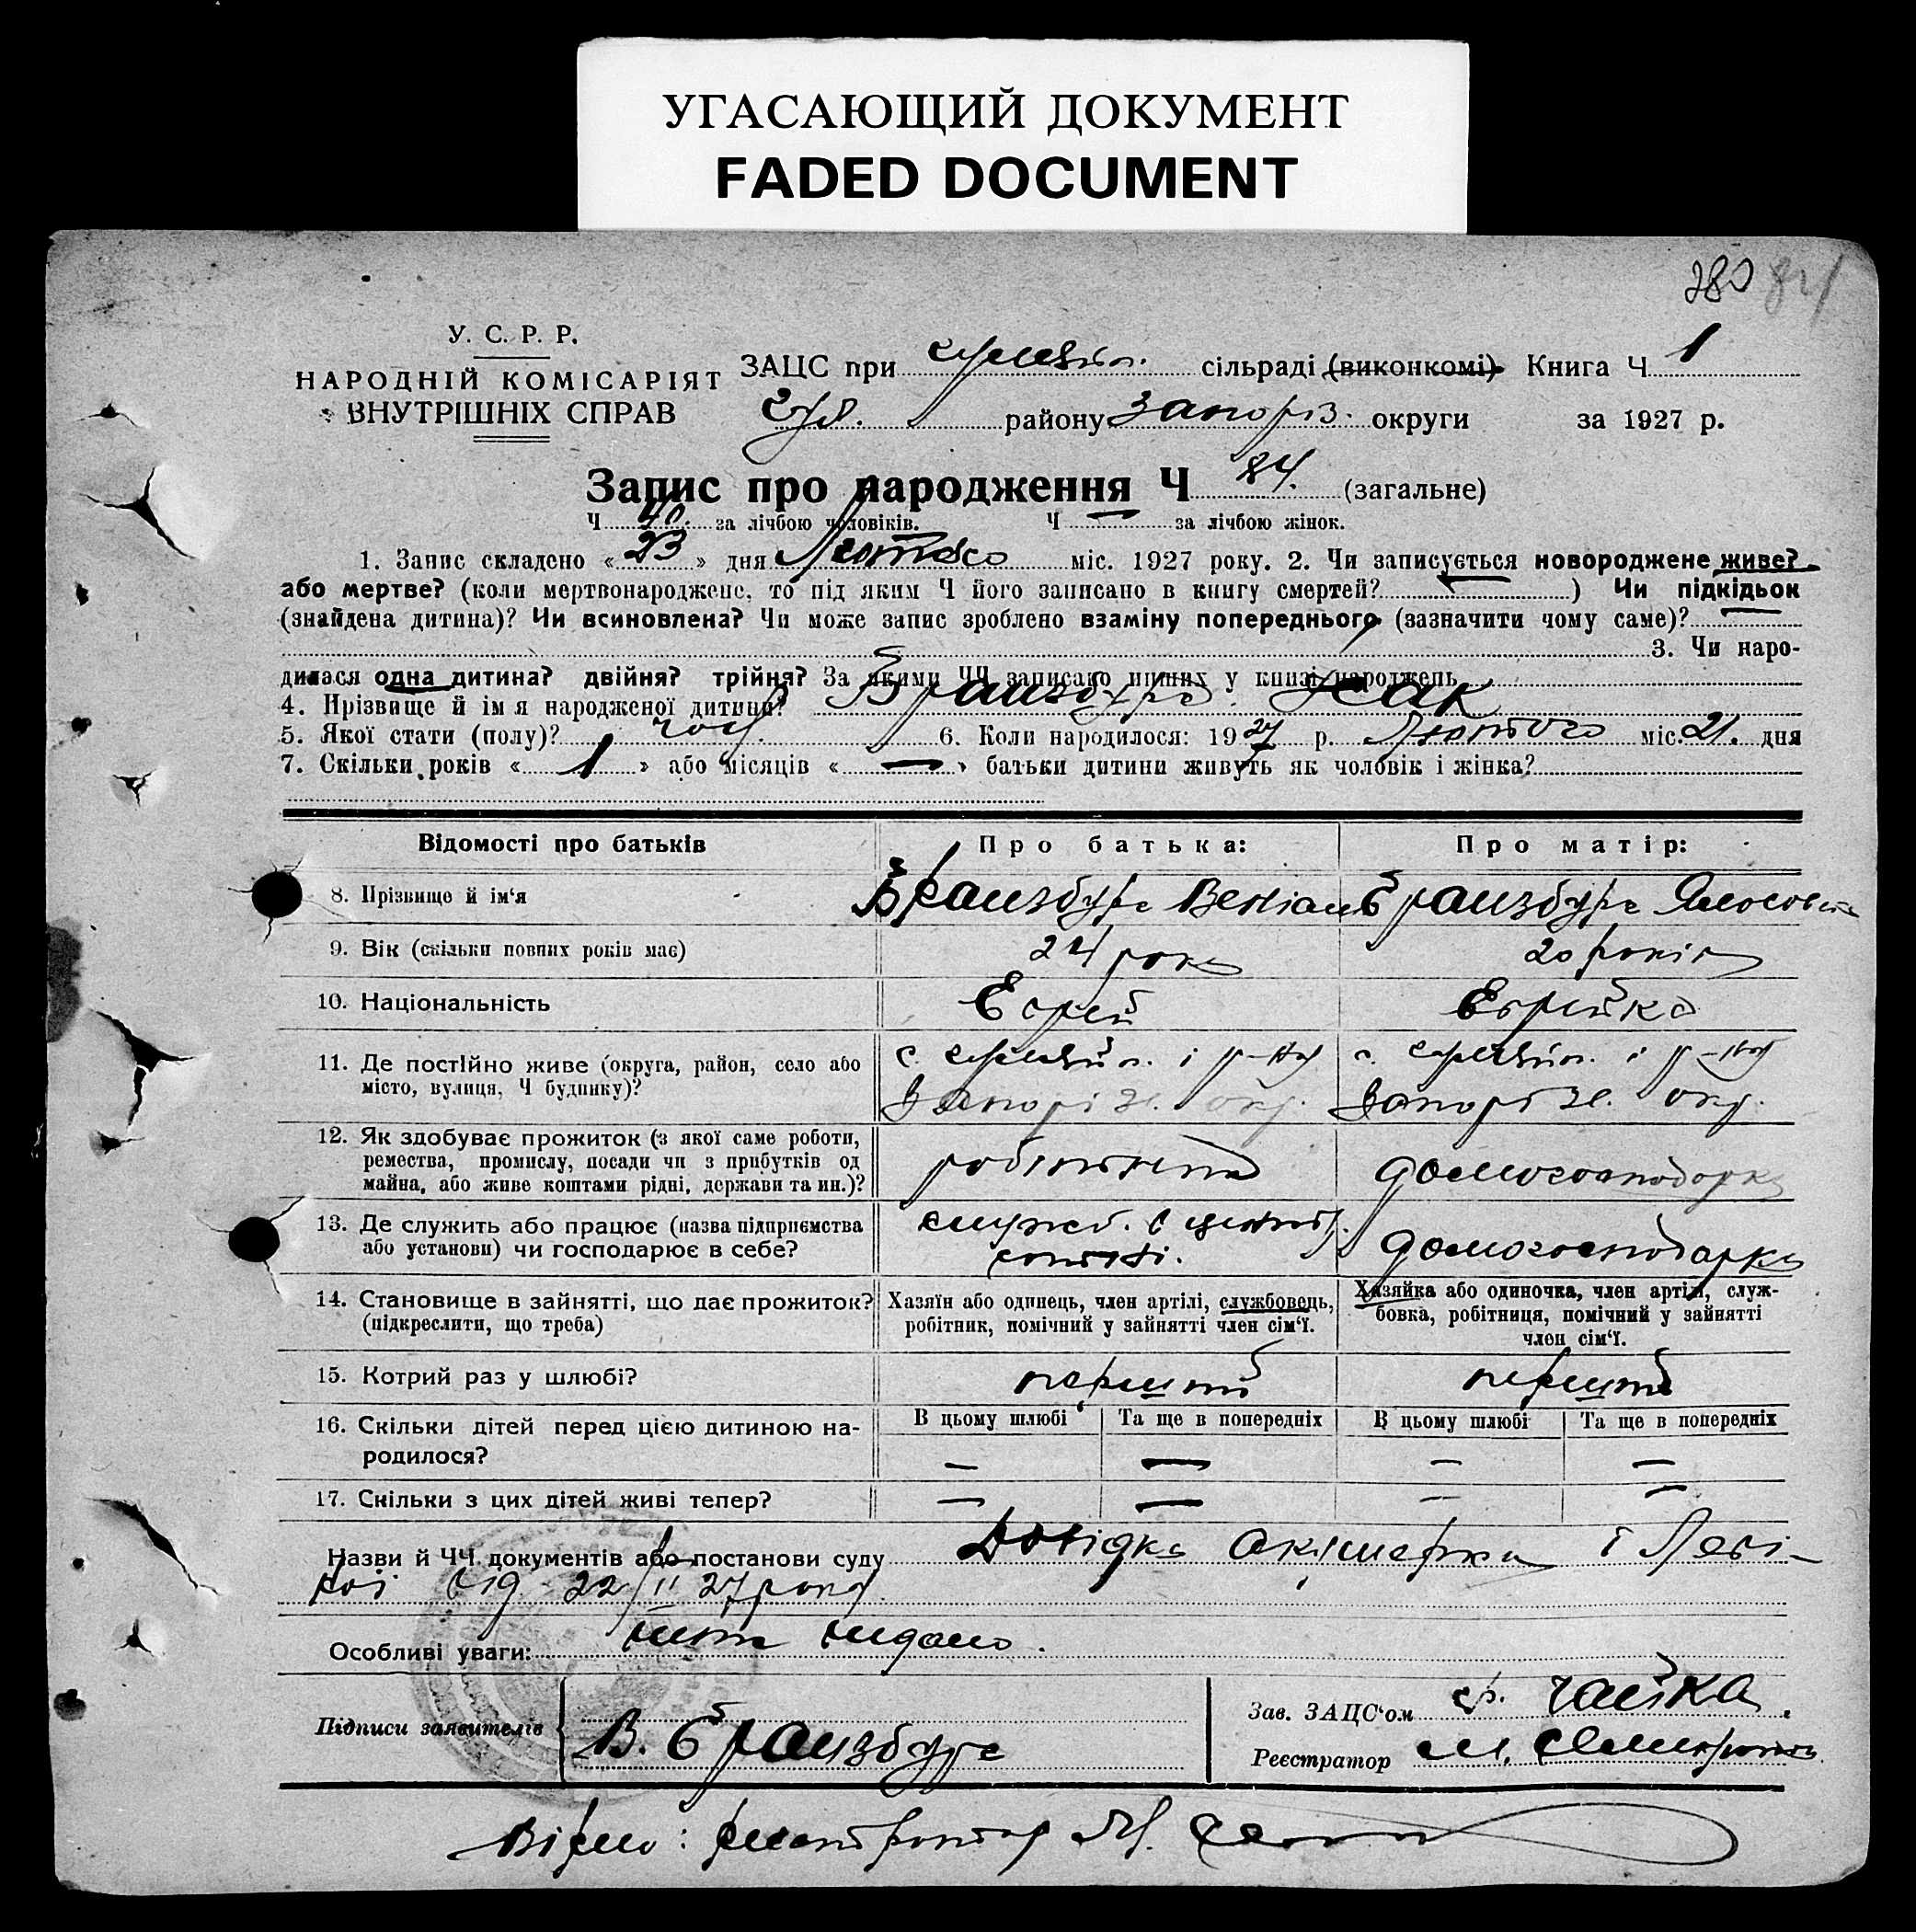 УГАСАЮЩИЙ ДОКУМЕНТ
FADED DOCUMENT
280 84
У. С. Р. Р.
НАРОДНІЙ КОМІСАРІЯТ
ВНУТРІШНІХ СПРАВ
ЗАЦС при сільраді (виконкомі) Книга Ч 1
району Запоріз. округи за 1927 р.
Запис про народження Ч 84. (загальне)
Ч 40. за лічбою чоловіків. Ч — за лічбою жінок.
1. Запис складено « 23 » дня Лютого міс. 1927 року. 2. Чи записується новороджене живе?
або мертве? (коли мертвонароджене, то під яким Ч його записано в книгу смертей? — ) Чи підкідьок
(знайдена дитина)? Чи всиновлена? Чи може запис зроблено взаміну попереднього (зазначити чому саме)? —
3. Чи наро-
дилася одна дитина? двійня? трійня? За якими ЧЧ записано інших у книзі народжень
4. Прізвище й ім'я народженої дитини? Браизбург Ісак
5. Якої стати (полу)? чол. 6. Коли народилося: 1927 р. Лютого міс. 21. дня
7. Скільки років « 1 » або місяців « — » батьки дитини живуть як чоловік і жінка?
Відомості про батьків Про батька: Про матір:
8. Прізвище й ім'я Браизбург Веніам Браизбург
9. Вік (скільки повних років має) 24 роки 20 років
10. Національність Еврей Еврейка
11. Де постійно живе (округа, район, село або с. і р-ну с. і р-ну
місто, вулиця, Ч будинку)? Запорізк. окр. Запорізк. окр.
12. Як здобуває прожиток (з якої саме роботи,
ремества, промислу, посади чи з прибутків од робітник домогосподарка
майна, або живе коштами рідні, держави та ин.)?
13. Де служить або працює (назва підприємства служб.
або установи) чи господарює в себе? домогосподарка
14. Становище в зайнятті, що дає прожиток? Хазяїн або одинець, член артілі, службовець, Хазяйка або одиночка, член артілі, служ-
(підкреслити, що треба) робітник, помічний у зайнятті член сім'ї. бовка, робітниця, помічний у зайнятті
член сім'ї.
15. Котрий раз у шлюбі? перший перший
16. Скільки дітей перед цією дитиною на- В цьому шлюбі Та ще в попередніх В цьому шлюбі Та ще в попередніх
родилося? — — — —
17. Скільки з цих дітей живі тепер? — — — —
Назви й ЧЧ документів або постанови суду Довідка акушерки Леві-
ної від 22/II 27 року
Особливі уваги:
Підписи заявителів В. Браизбург
Зав. ЗАЦС'ом Чайка
Реєстратор М.
Вірно: реєстратор М.